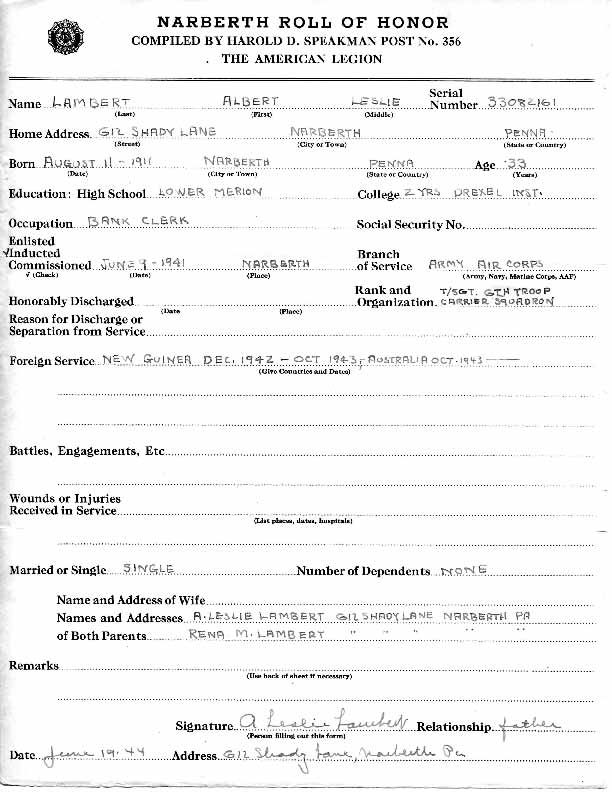 NARBERTH ROLL OF HONOR
COMPILED BY HAROLD D. SPEAKMAN POST No. 356
THE AMERICAN LEGION
Name LAMBERT ALBERT LESLIE Serial Number 33082161
(Last) (First) (Middle)
Home Address 612 SHADY LANE NARBERTH PENNA
(Street) (City or Town) (State or Country)
Born AUGUST 11 - 1911 NARBERTH PENNA Age 33
(Date) (City or Town) (State or Country) (Years)
Education: High School LOWER MERION College 2 YRS DREXEL INST.
Occupation BANK CLERK Social Security No.
Enlisted
√Inducted
Commissioned JUNE 9 - 1941 NARBERTH Branch of Service ARMY AIR CORPS
√ (Check) (Date) (Place) (Army, Navy, Marine Corps, AAF)
Honorably Discharged Rank and Organization T/SGT. 6TH TROOP CARRIER SQUADRON
(Date (Place)
Reason for Discharge or
Separation from Service
Foreign Service NEW GUINEA DEC. 1942 - OCT 1943, AUSTRALIA OCT. 1943 -
(Give Countries and Dates)
Battles, Engagements, Etc
Wounds or Injuries
Received in Service
(List places, dates, hospitals)
Married or Single SINGLE Number of Dependents NONE
Name and Address of Wife
Names and Addresses A. LESLIE LAMBERT 612 SHADY LANE NARBERTH PA
of Both Parents RENA M. LAMBERT " " " " "
Remarks
(Use back of sheet if necessary)
Signature A Leslie Lambert Relationship father
(Person filling out this form)
Date June 19.44 Address 612 Shady Lane, Narberth Pa